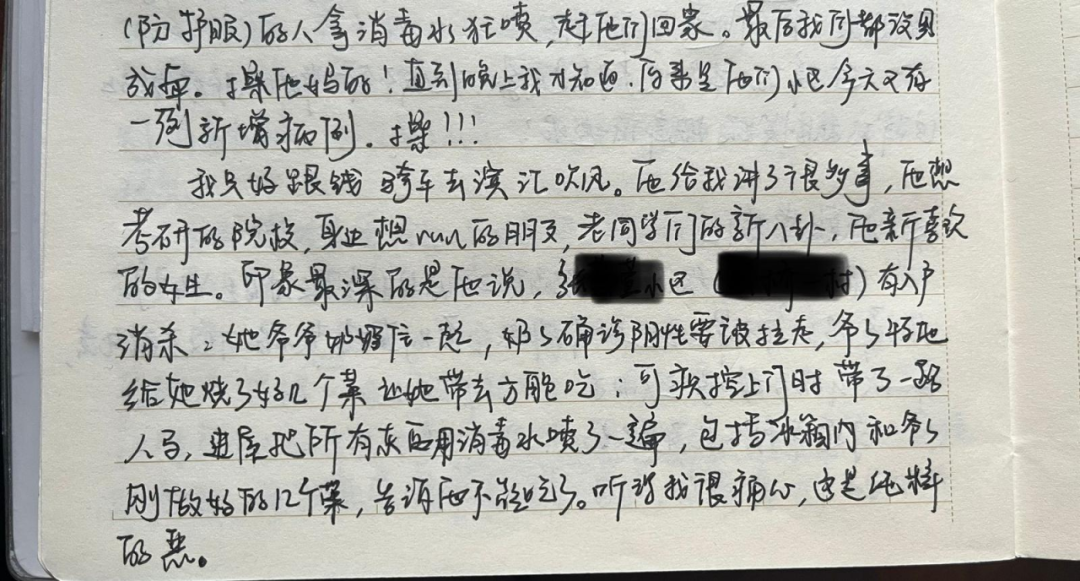 (防护服)的人拿消毒水狂喷,赶他们回家。最后我们都没见
成面。操他妈的!直到晚上我才知道,原来是他们小区今天又有
一例新增病例。操!!!
我只好跟钱 骑车去滨江吹风。他给我讲了很多事,他想
考研的院校,身边想run的朋友,老同学们的新八卦,他新喜欢
的女生。印象最深的是他说,张 小区( 村)有入户
消杀:她爷爷奶奶住一起,奶奶确诊阳性要被拉走,爷爷特地
给她烧了好几个菜让她带去方舱吃;可疾控上门时带了一路
人马,进屋把所有东西用消毒水喷了一遍,包括冰箱内和爷爷
刚做好的几个菜,告诉他不能吃了。听得我很痛心,这是纯粹
的恶。